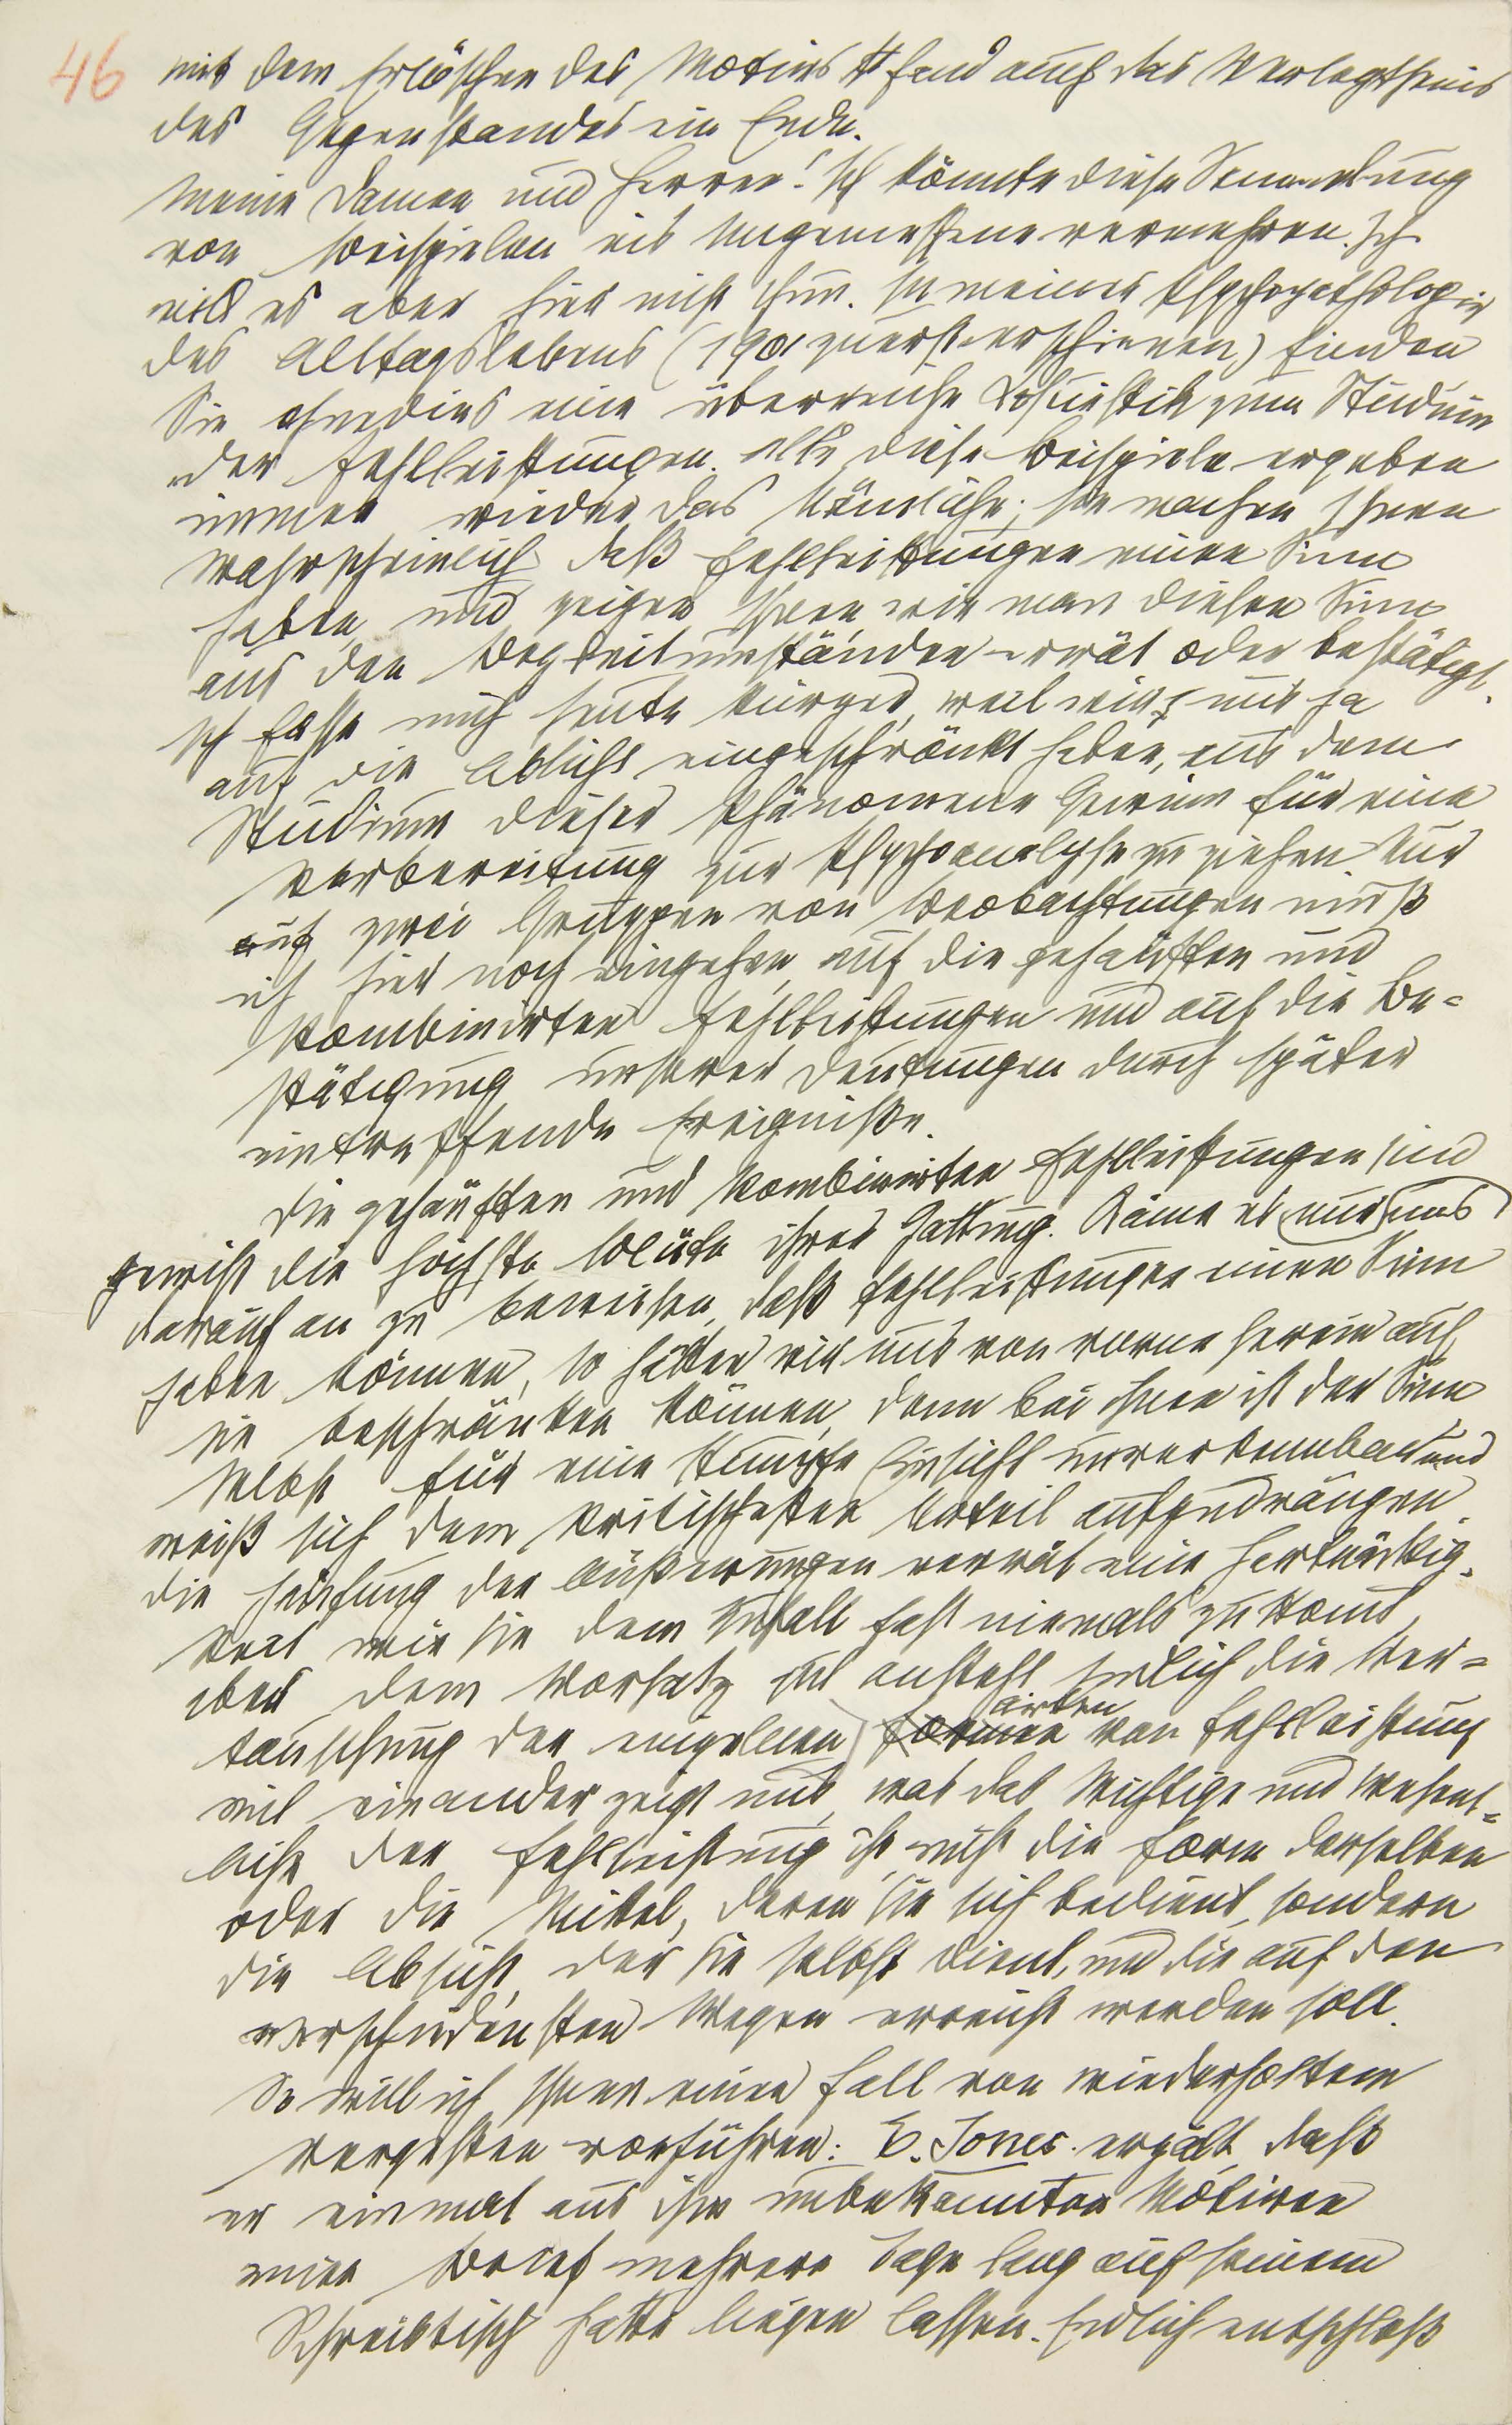 46
mit dem Erlöschen des Motivs fand auch das Verlegtsein
des Gegenstandes ein Ende.
Meine Damen und Herren! Ich könnte diese Sammlung
von Beispielen ins Ungemessene vermehren. Ich
will es aber hier nicht thun. In meiner Psychopathologie
des Alltagslebens (1901 zuerst erschienen) finden
Sie ohnedies eine überreiche Kasuistik zum Studium
der Fehlleistungen. Alle diese Beispiele ergeben
immer wieder das Nämliche; sie machen Ihnen
wahrscheinlich, daß Fehlleistungen einen Sinn
haben, und zeigen Ihnen, wie man diesen Sinn
aus den Begleitumständen errät oder bestätigt.
Ich fasse mich heute kürzer, weil wir uns ja
auf die Absicht eingeschränkt haben, aus dem
Studium dieser Phänomene Gewinn für eine
Vorbereitung zur Psychoanalyse zu ziehen. Nur
auf zwei Gruppen von Beobachtungen muß
ich hier noch eingehen, auf die gehäuften und
kombinirten Fehlleistungen und auf die Be-
stätigung unserer Deutungen durch später
eintreffende Ereigniße.
Die gehäuften und kombinirten Fehlleistungen sind
gewiß die höchste Blüte ihrer Gattung. Käme es nur uns
darauf an zu beweisen, daß Fehlleistungen einen Sinn
haben können, so hätten wir uns von vorne herein auf
sie beschränken können, denn bei ihnen ist der Sinn
selbst für eine stumpfe Einsicht unverkennbar und
weiß sich dem kritischesten Urteil aufzudrängen.
Die Häufung der Äußerungen verrät eine Hartnäckig-
keit, wie sie dem Zufall fast niemals zukomt,
aber dem Vorsatz gut ansteht. Endlich die Ver-
tauschung der einzelnen Formen Arten von Fehlleistung
mit einander zeigt uns, was das Wichtige und Wesent-
liche der Fehlleistung ist, nicht die Form derselben
oder die Mittel, deren sie sich bedient, sondern
die Absicht, der sie selbst dient, und die auf den
verschiedensten Wegen erreicht werden soll.
So will ich Ihnen einen Fall von wiederholtem
Vergessen vorführen: E. Jones erzält, daß
er einmal aus ihm unbekannten Motiven
einen Brief mehrere Tage lang auf seinem
Schreibtisch hatte liegen lassen. Endlich entschloß